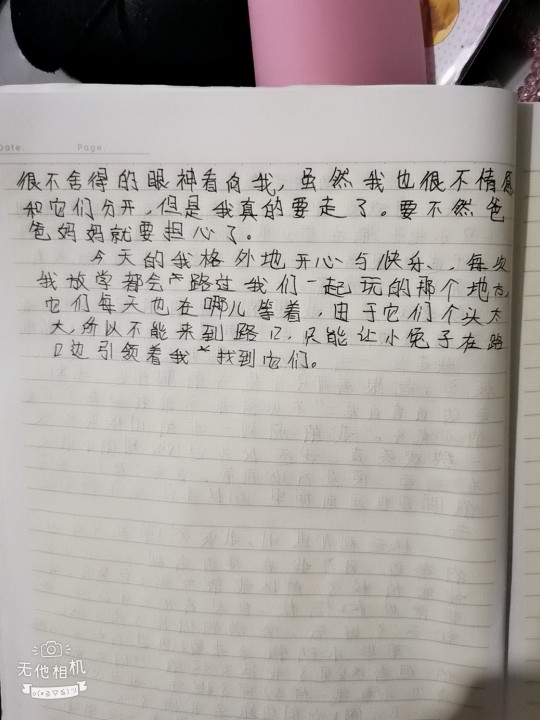 Date. Page.
很不舍得的眼神看向我，虽然我也很不情愿
和它们分开，但是我真的要走了。要不然爸
爸妈妈就要担心了。
今天的我格外地开心与快乐，每次
我放学都会路过我们一起玩的那个地方，
它们每天也在哪儿等着，由于它们个头太
大，所以不能来到路口，只能让小兔子在路
口边引领着我找到它们。
无他相机